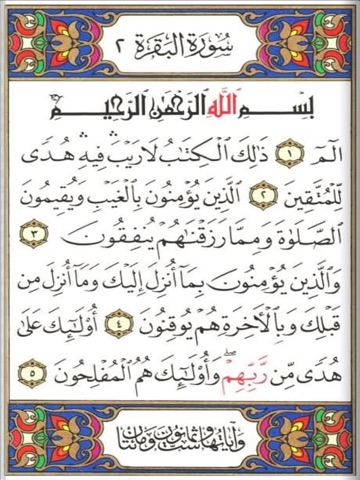 سُورَةُ الْبَقَرَة ٢
بِسْمِ اللهِ الرَّحْمٰنِ الرَّحِيمِ
الٓمٓ ۝١ ذٰلِكَ الْكِتَابُ لَا رَيْبَ ۛ فِيهِ ۛ هُدًى
لِلْمُتَّقِينَ ۝٢ الَّذِينَ يُؤْمِنُونَ بِالْغَيْبِ وَيُقِيمُونَ
الصَّلٰوةَ وَمِمَّا رَزَقْنَاهُمْ يُنْفِقُونَ ۝٣
وَالَّذِينَ يُؤْمِنُونَ بِمَا أُنْزِلَ إِلَيْكَ وَمَا أُنْزِلَ مِنْ
قَبْلِكَ وَبِالْاٰخِرَةِ هُمْ يُوقِنُونَ ۝٤ أُولٰٓئِكَ عَلٰى
هُدًى مِنْ رَبِّهِمْ ۖ وَأُولٰٓئِكَ هُمُ الْمُفْلِحُونَ ۝٥
وَآيَاتُهَا سِتٌّ وَثَمَانُونَ وَمِائَتَانِ